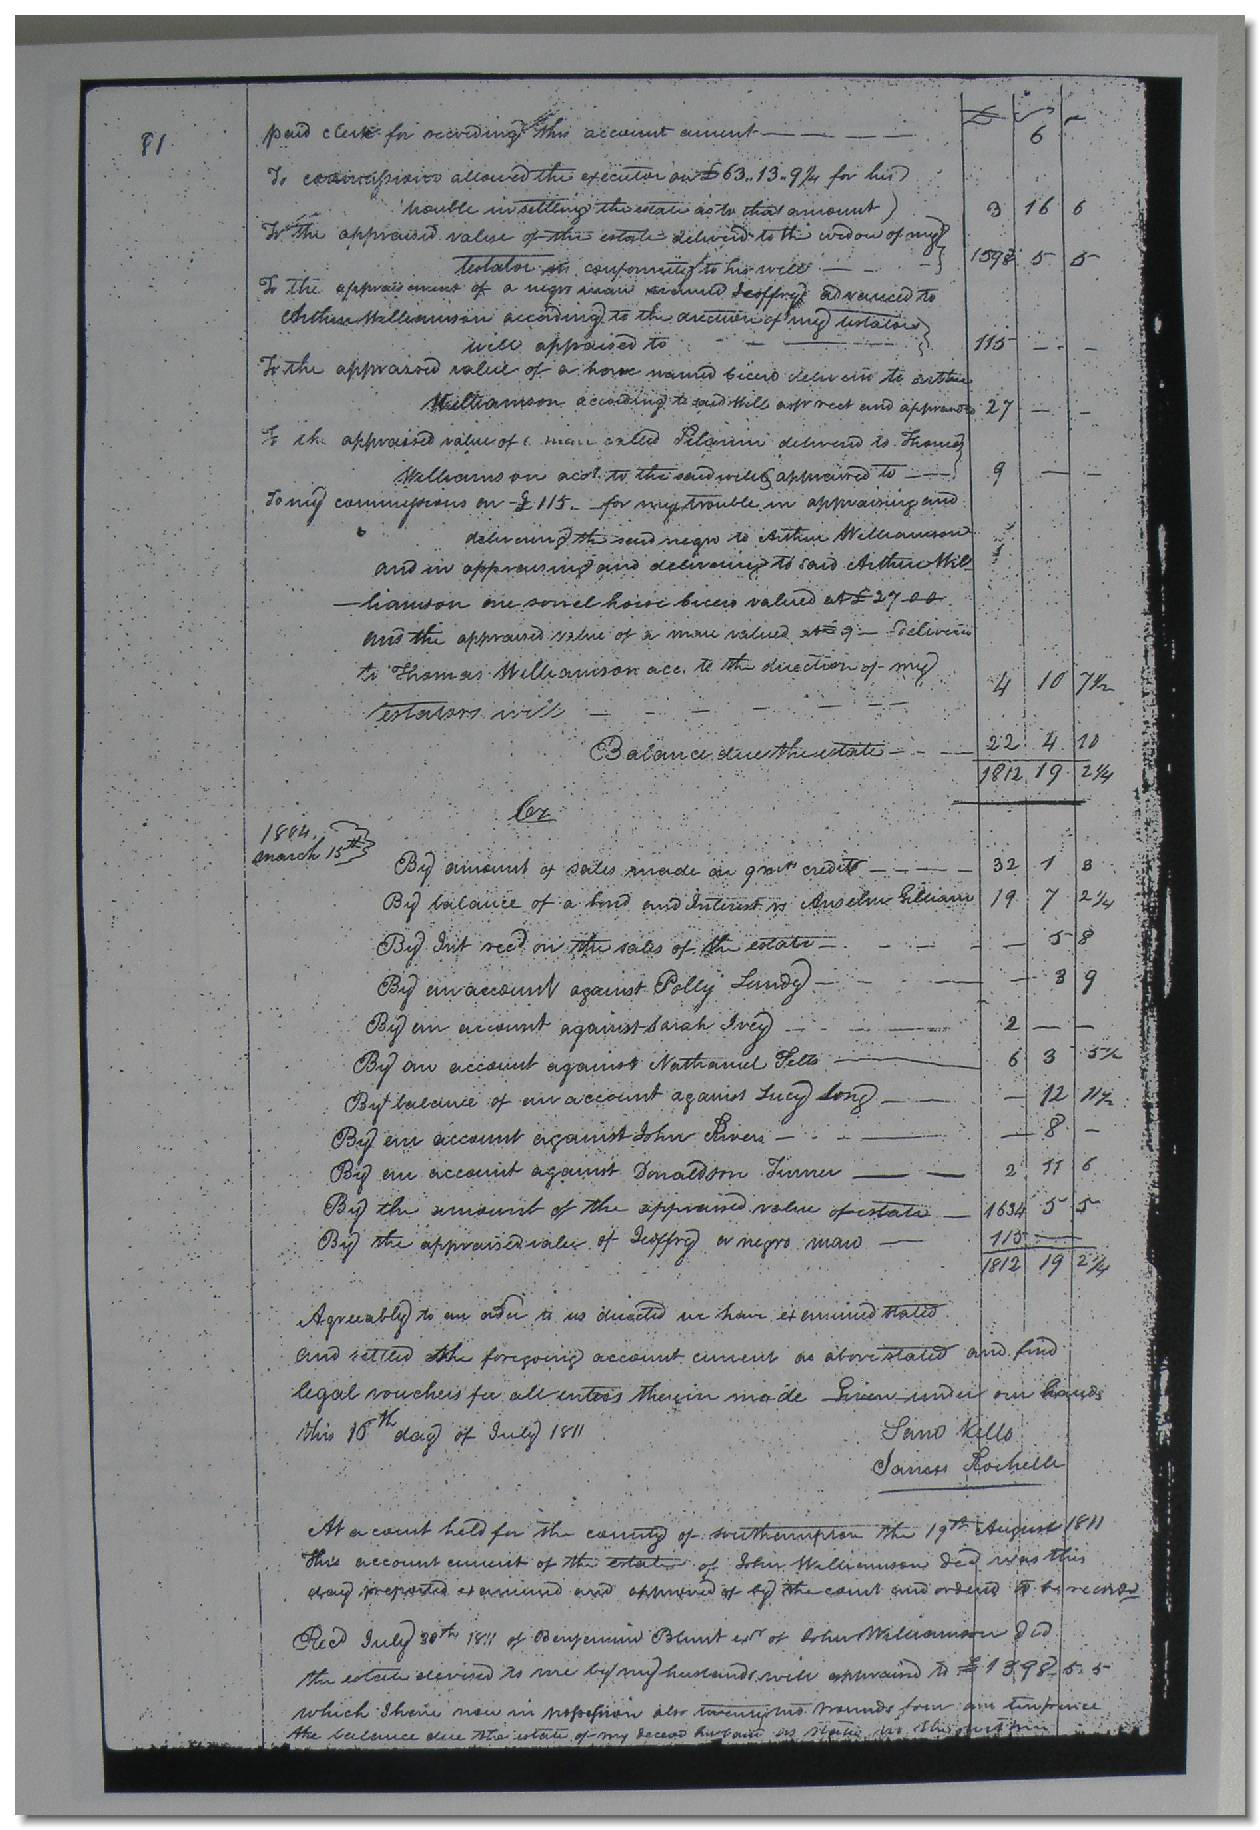 81
£ s
paid clerk for recording this account current — — — — 6
To commissions allowed the executor on £63..13..9¼ for his)
trouble in settling the estate as to that amount) 3 16 6
To the appraised value of the estate delivered to the widow of my}
testator in conformity to his will — — —} 1598 5 5
To the appraisement of a negro man named Jeoffry advanced to
Arthur Williamson according to the direction of my testators}
will appraised to — — —} 115 — —
To the appraised value of a horse named delivered to Arthur
Williamson according to said Will and appraised 27 — —
To the appraised value of a mare called delivered to Thomas}
Williamson acct. to the said will & appraised to — —} 9 — —
To my commissions on £115 — for my trouble in appraising and
delivering the said negro to Arthur Williamson
and in appraising and delivering to said Arthur Wil
— liamson one sorrel horse valued at £27 00
and the appraised value of a mare valued at £9 — delivered
to Thomas Williamson acc. to the direction of my
testators will — — — — — — 4 10 7½
Balance due the estate — — — 22 4 10
1812 19 2¼
Cr
1804.
March 15th
By amount of sales made on credit — — — — 32 1 3
By balance of a bond and Interest vs Anselm Gilliam 19 7 2¼
By Int recd on the sales of the estate — — — — 5 8
By an account against Polly Landy — — — — 3 9
By an account against Sarah Ivey — — — — 2 — —
By an account against Nathaniel Felts — 6 3 5½
By balance of an account against Lucy Long — — — 12 11½
By an account against John Rivers — — — 8 —
By an account against Donaldson Turner — — 2 11 6
By the amount of the appraised value of estate — 1634 5 5
By the appraised value of Jeoffry a negro man — 115 — —
1812 19 2¼
Agreeably to an order to us directed we have examined stated
and settled the foregoing account current as above stated and find
legal vouchers for all entries therein made Given under our hands
this 18th day of July 1811
Saml Kello
James Rochelle
At a court held for the county of Southampton the 19th August 1811
This account current of the estate of John Williamson decd was this
day reported examined and approved of by the court and ordered to be recorded
Recd July 30th 1811 of Benjamin Blunt exr of John Williamson decd
the estate devised to me by my husbands will appraised to £1598. 5. 5
which I have now in possession also twenty two pounds four and ten pence
the balance due the estate of my deceasd husband as stated in the